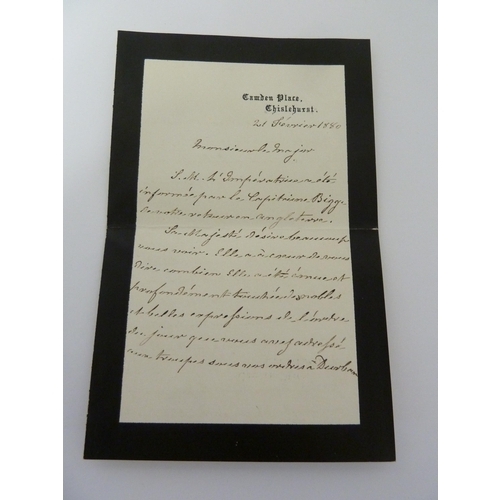 Camden Place,
Chislehurst.
21 Février 1880
Monsieur le Major
S. M. l'Impératrice a été
informée par le Capitaine Bigge
de votre retour en angleterre.
Sa Majesté désire beaucoup
vous voir. Elle a à cœur de vous
dire combien Elle a été émue et
profondément touchée des nobles
et belles expressions de l'ordre
du jour que vous avez adressé
aux troupes sous vos ordres à Durban